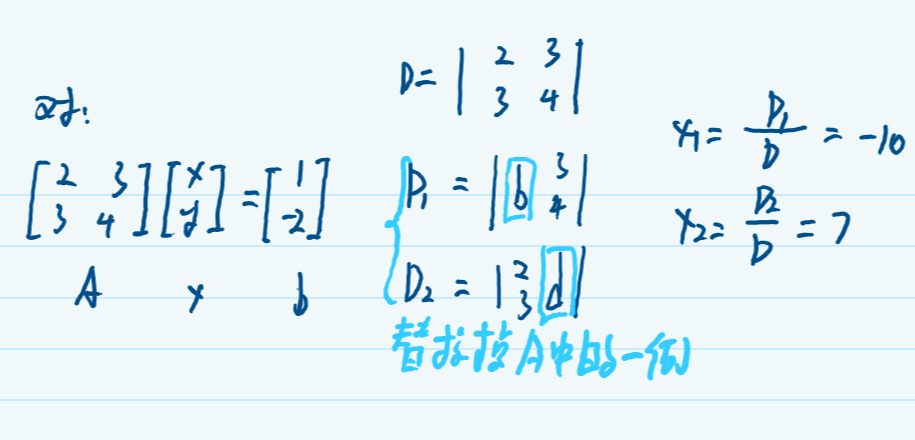 对:
[2 3; 3 4] [x; y] = [1; -2]
A x b
D = |2 3; 3 4|
D₁ = |b 3; 4|
D₂ = |2 3 d|
替换掉A中的一例
x₁ = D₁/D = -10
x₂ = D₂/D = 7